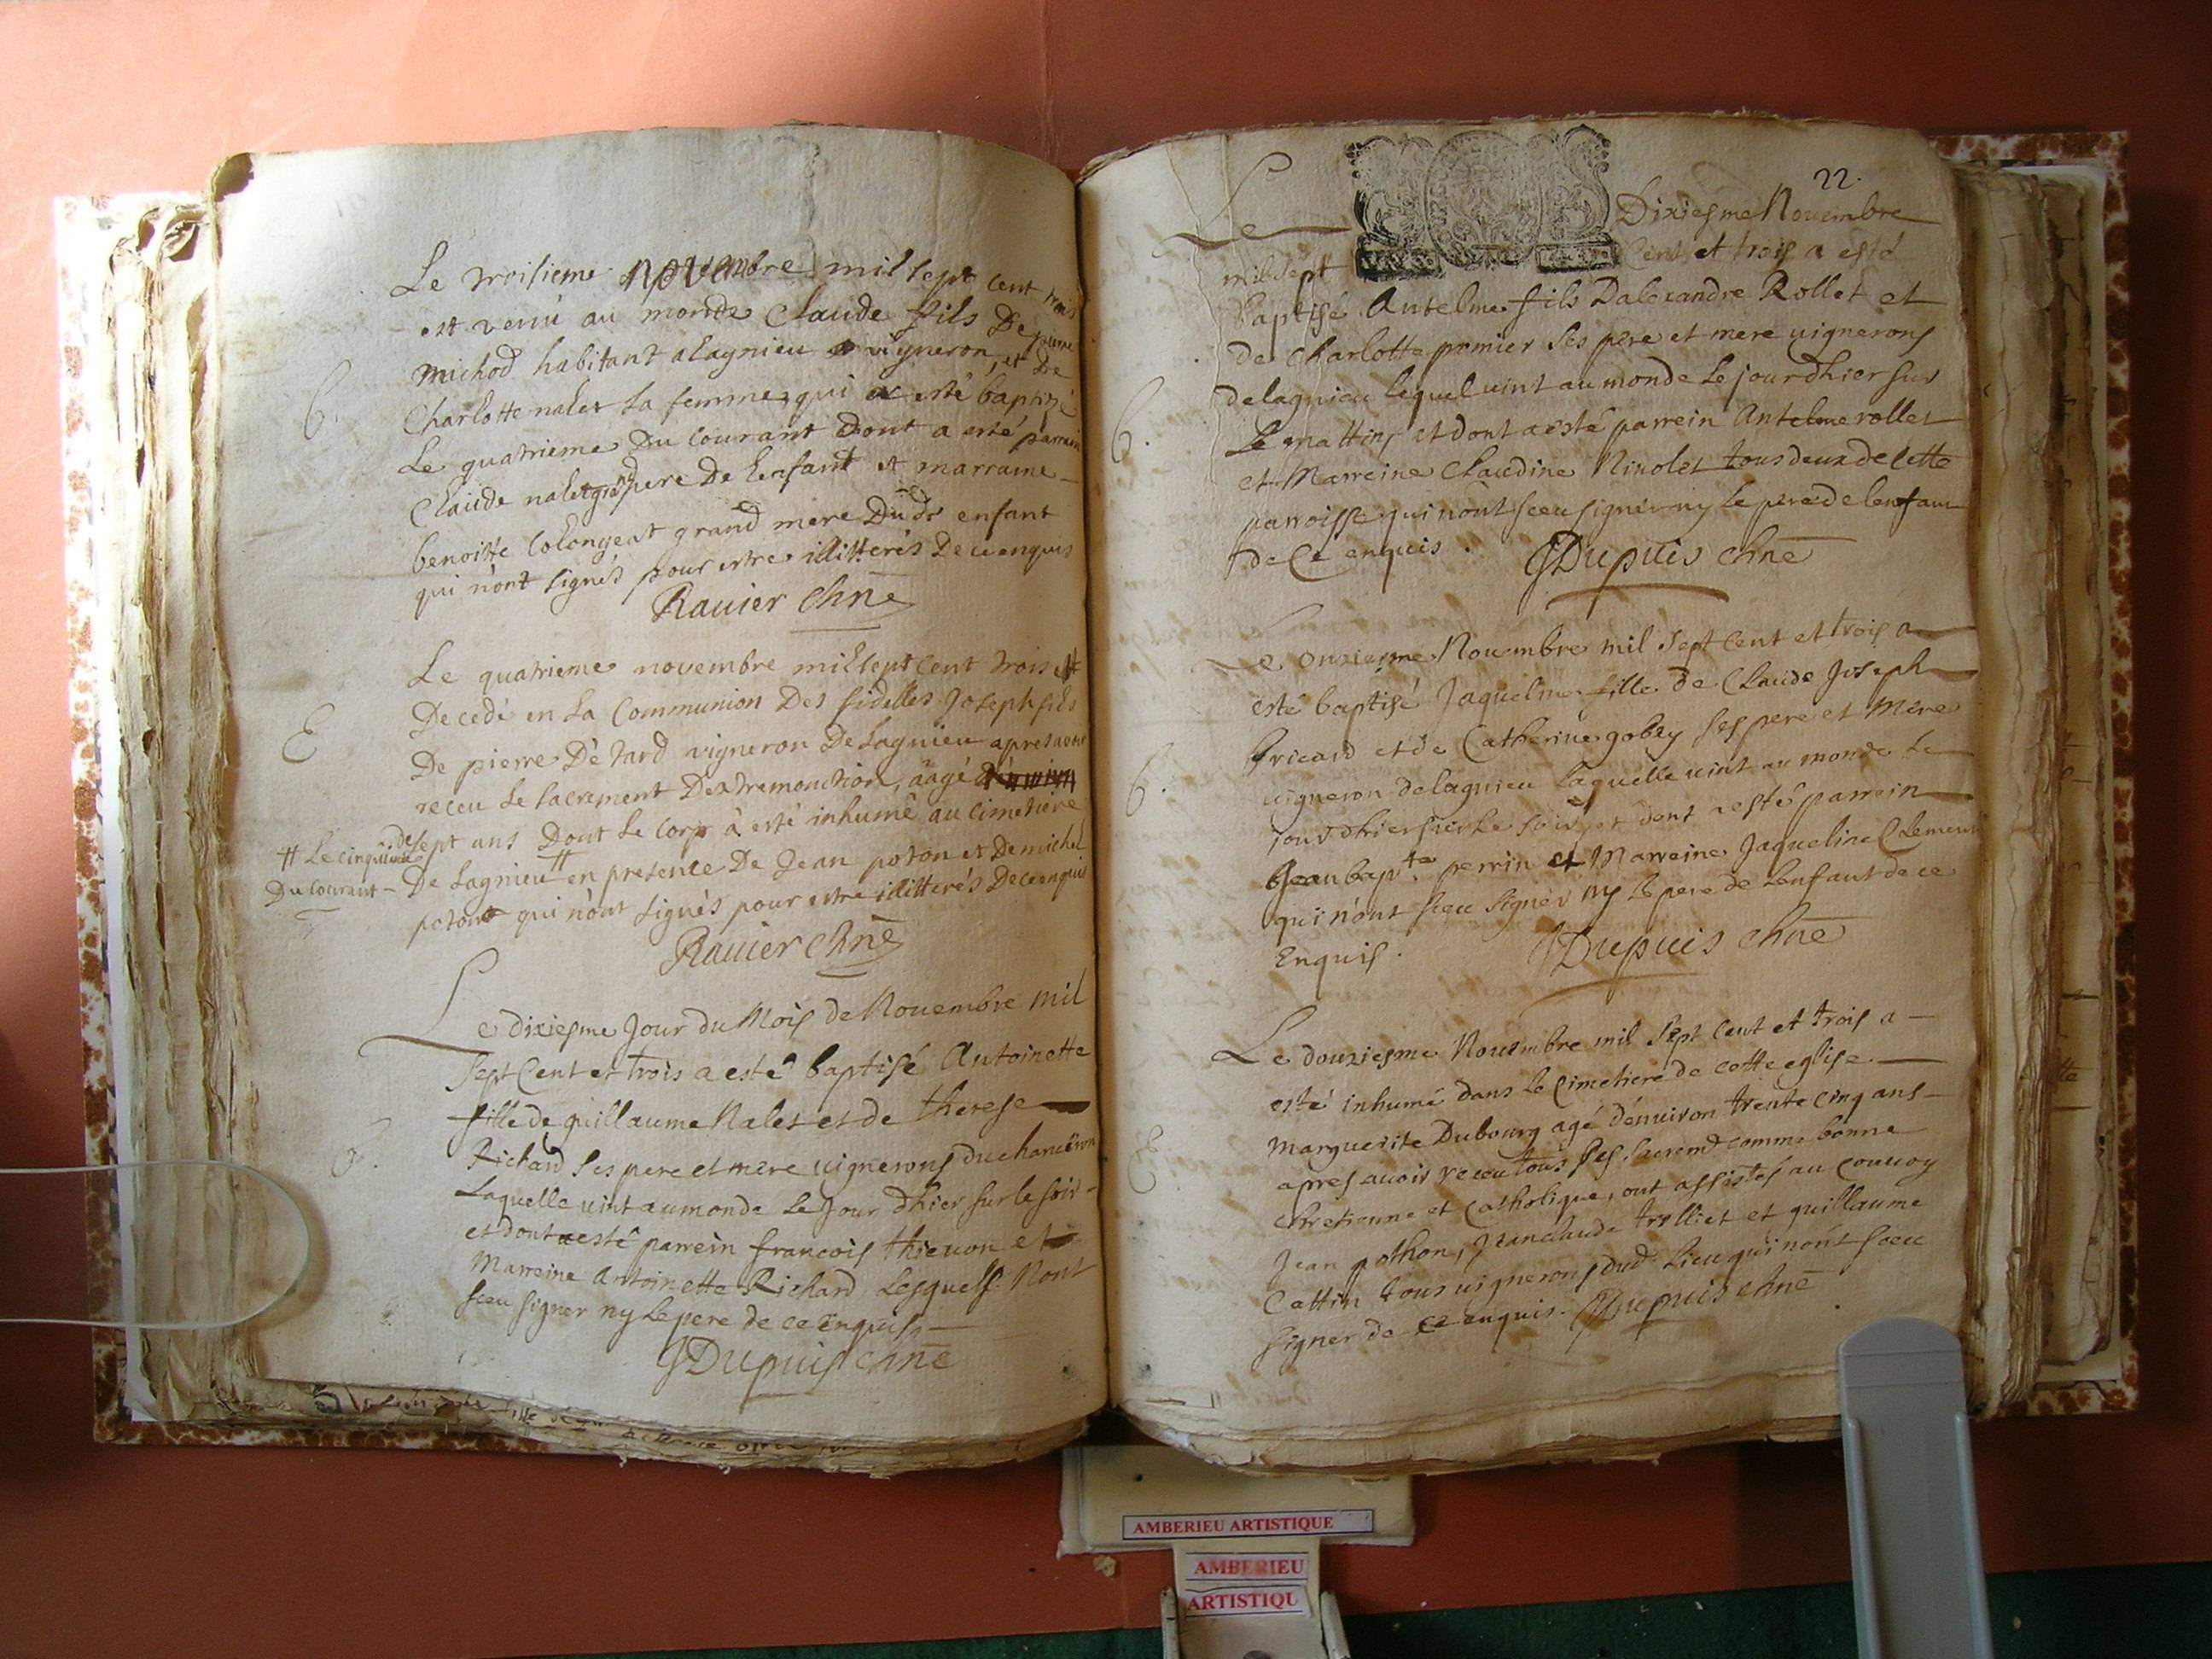 Le troisieme novembre mil sept cent trois
est venu au monde Claude fils De pierre
Michod habitant a Lagnieu vigneron, et De
Charlotte nalet sa femme, qui a esté baptizé
B.
Le quatrieme Du Courant Dont a esté parrain
Claude nalet grand pere De Lenfant et marraine
benoitte Colongeat grand mere Dudt enfant
qui n'ont signés pour estre illitterés De ce enquis
Ravier Chne
Le quatrieme novembre mil sept cent trois est
Decedé en La Communion Des fidelles Joseph fils
E
De pierre Dètard vigneron De Lagnieu apres avoir
receu Le sacrement Dextremonction, aagé
de sept ans Dont Le Corp à esté inhumé au Cimetiere
# Le cinquieme
Du Courant -
De Lagnieu # en presence De Jean poton et De michel
poton qui n'ont signés pour estre illitterés De ce enquis
Ravier Chne
Le dixiesme Jour du Mois de Nouembre mil
Sept Cent et trois a esté baptisé Antoinette
fille de guillaume Nalet et de therese
B.
Richard ses pere et mere uignerons du
Laquelle uint au monde Le Jour dhier sur le soir
et dont a esté parrein francois thieuon et
Marreine Antoinette Richard Lesquels Nont
sceu signer ny Le pere de ce enquis
JDupuis chne
22.
Le Dixiesme Nouembre
mil sept Cent et trois a esté
Baptisé Antelme fils Dalexandre Rollet et
de Charlotte promier ses pere et mere uignerons
B.
de lagnieu lequel uint au monde Le jour dhier sur
Le mattins et dont a esté parrein Antelme rollet
et Marreine Claudine Niuolet tous deux de cette
parroisse qui nont sceu signer ny Le pere de lenfant
de Ce enquis. JDupuis chne
Le onziesme Nouembre mil sept cent et trois a
esté baptisé Jaquelme fille de Claude Joseph
bricard et de Catherine gobry ses pere et Mere
B.
uigneron de lagnieu Laquelle uint au monde Le
jour dhier sur Le soir, et dont a esté parrein
Jean bapte perrin et Marreine Jaqueline Clement
qui n'ont sceu signer ny Le pere de Lenfant de ce
Enquis. JDupuis chne
Le douziesme Nouembre mil sept Cent et trois a
esté inhumé dans Le Cimetiere de cette eglise
E
Marguerite Dubourg agé d'enuiron trente cinq ans
apres auoir receu tous ses sacremt comme bonne
chretienne et Catholique, ont assistés au Conuoy
Jean pothon, Jean claude trolliet et guillaume
Cattin tous uignerons dudt Lieu qui nont sceu
signer de ce enquis. JDupuis chne
AMBERIEU ARTISTIQUE
AMBERIEU
ARTISTIQU